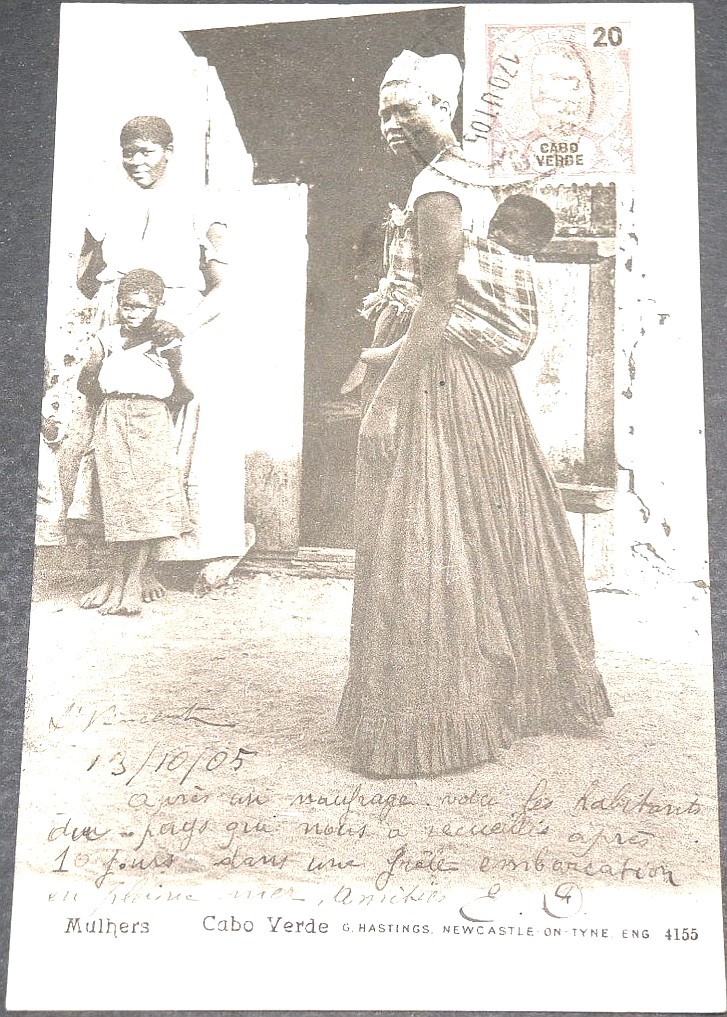 20
CABO
VERDE
12OUT05
St Vincent
13/10/05
après un naufrage voici les habitants
du pays qui nous a recueillis après
10 jours dans une frêle embarcation
en pleine mer, Amitiés E. G
Mulhers Cabo Verde G. HASTINGS, NEWCASTLE-ON-TYNE, ENG 4155